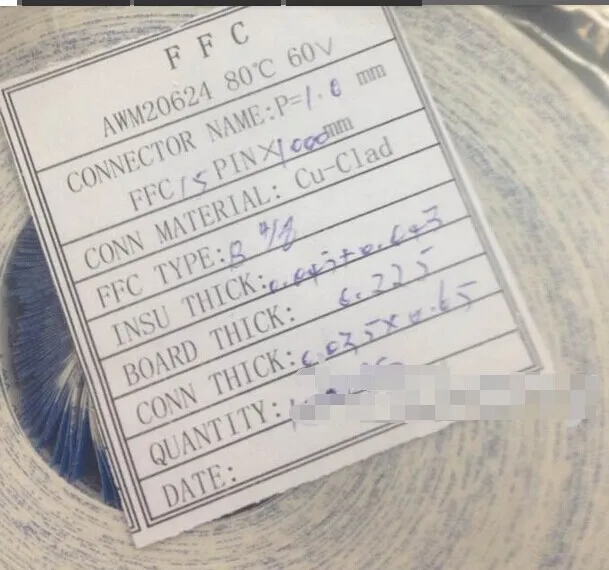 FFC
AWM20624 80℃ 60V
CONNECTOR NAME:P=1.0 mm
FFC 15 PIN×1000mm
CONN MATERIAL: Cu-Clad
FFC TYPE:B
INSU THICK:0.043+0.043
BOARD THICK: 0.225
CONN THICK:0.035×0.65
QUANTITY:
DATE: